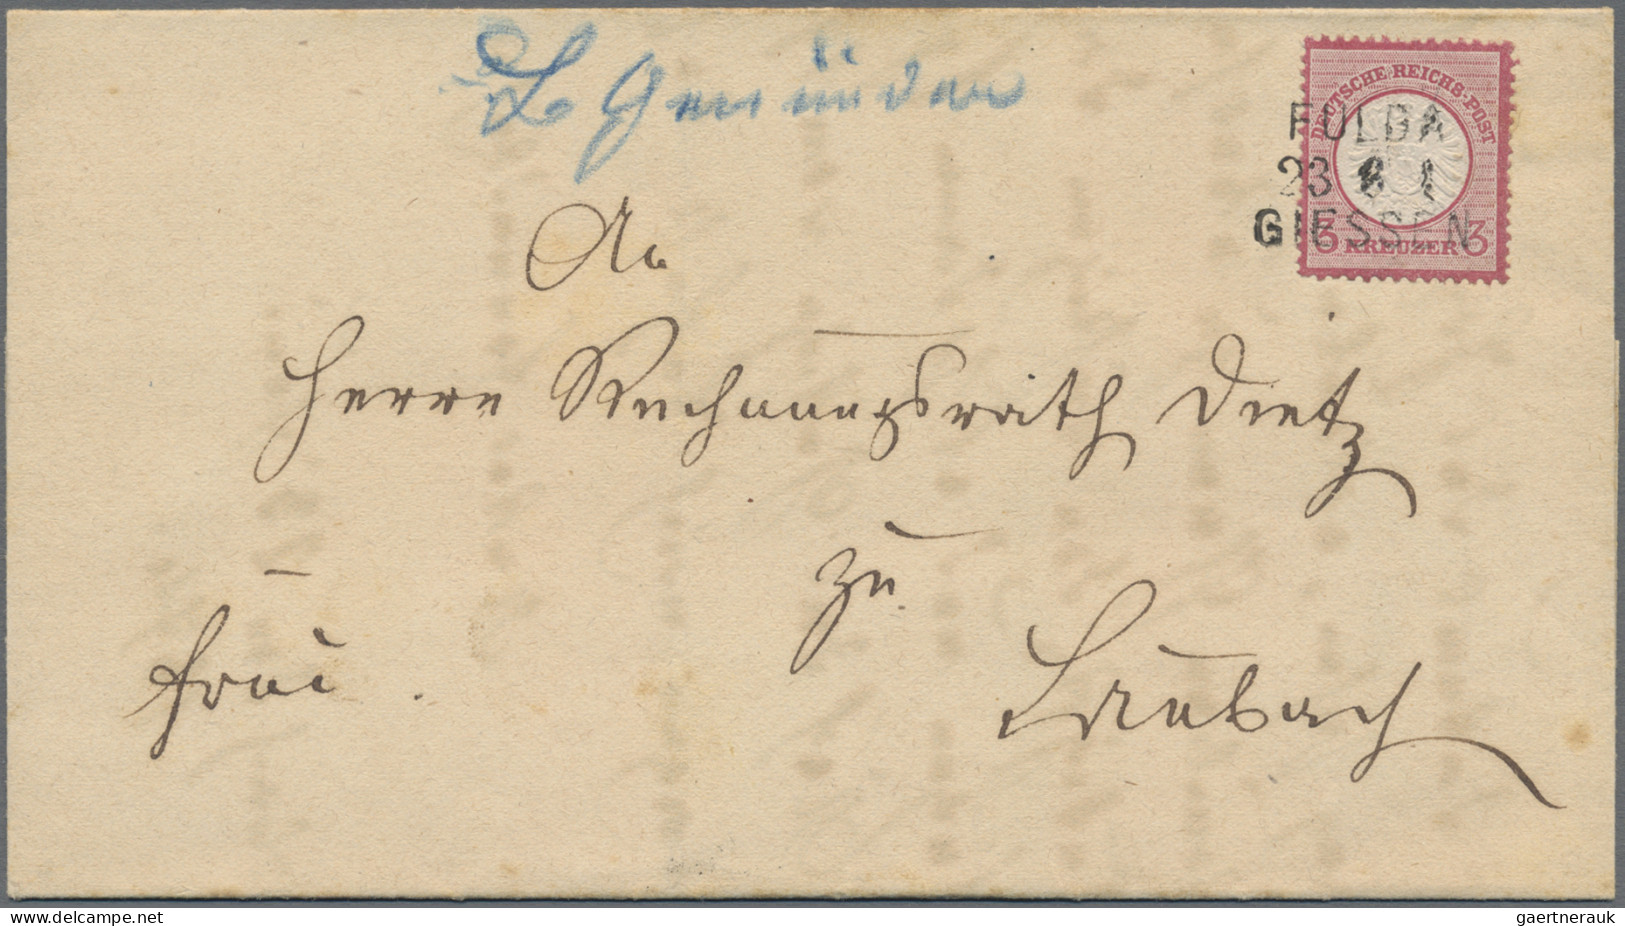 Gemünden
DEUTSCHE REICHS-POST
FULDA
23
GIESSEN
3 KREUZER 3
An
Herrn Rechnungsrath Dietz
zu
Laubach
frei.
www.delcampe.net
gaertnerauk